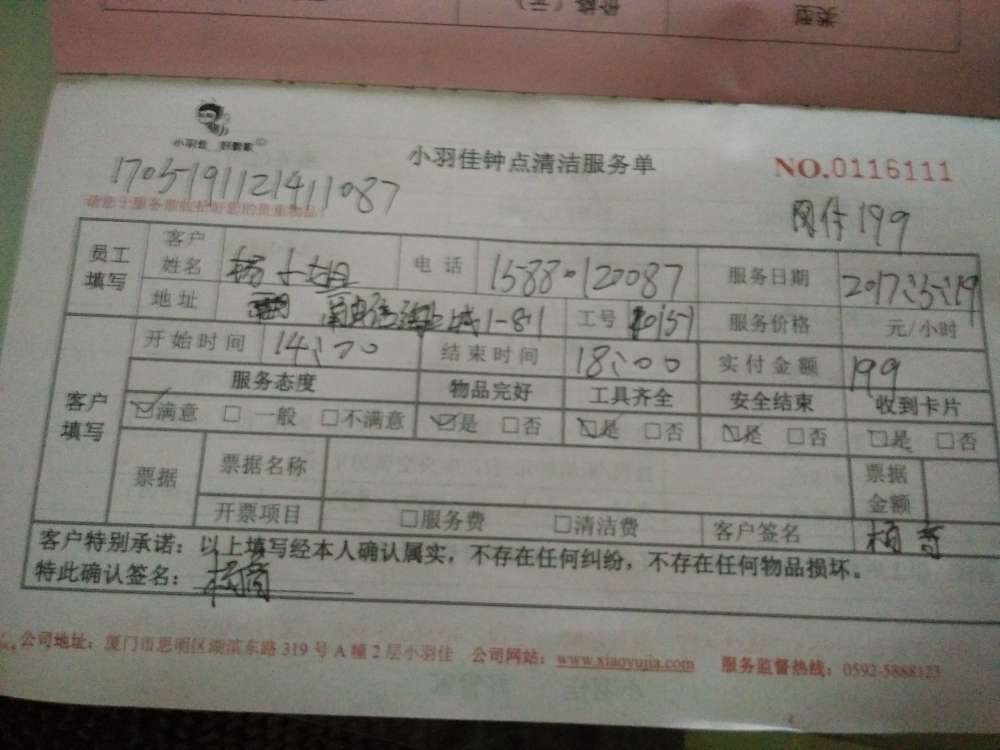 类型
价格（元）
小羽佳 好管家
小羽佳钟点清洁服务单
NO.0116111
1705191121411087
网付199
员工填写
客户姓名 杨小姐 电话 1588-120087 服务日期 2017.5.19
地址 1-8-1 工号 服务价格 元/小时
客户填写
开始时间 14:00 结束时间 18:00 实付金额 199
服务态度 物品完好 工具齐全 安全结束 收到卡片
☑满意 □一般 □不满意 ☑是 □否 ☑是 □否 ☑是 □否 □是 □否
票据 票据名称 票据金额
开票项目 □服务费 □清洁费 客户签名
客户特别承诺：以上填写经本人确认属实，不存在任何纠纷，不存在任何物品损坏。
特此确认签名：
公司地址：厦门市思明区湖滨东路319号A幢2层小羽佳 公司网站：www.xiaoyujia.com 服务监督热线：0592-5888123